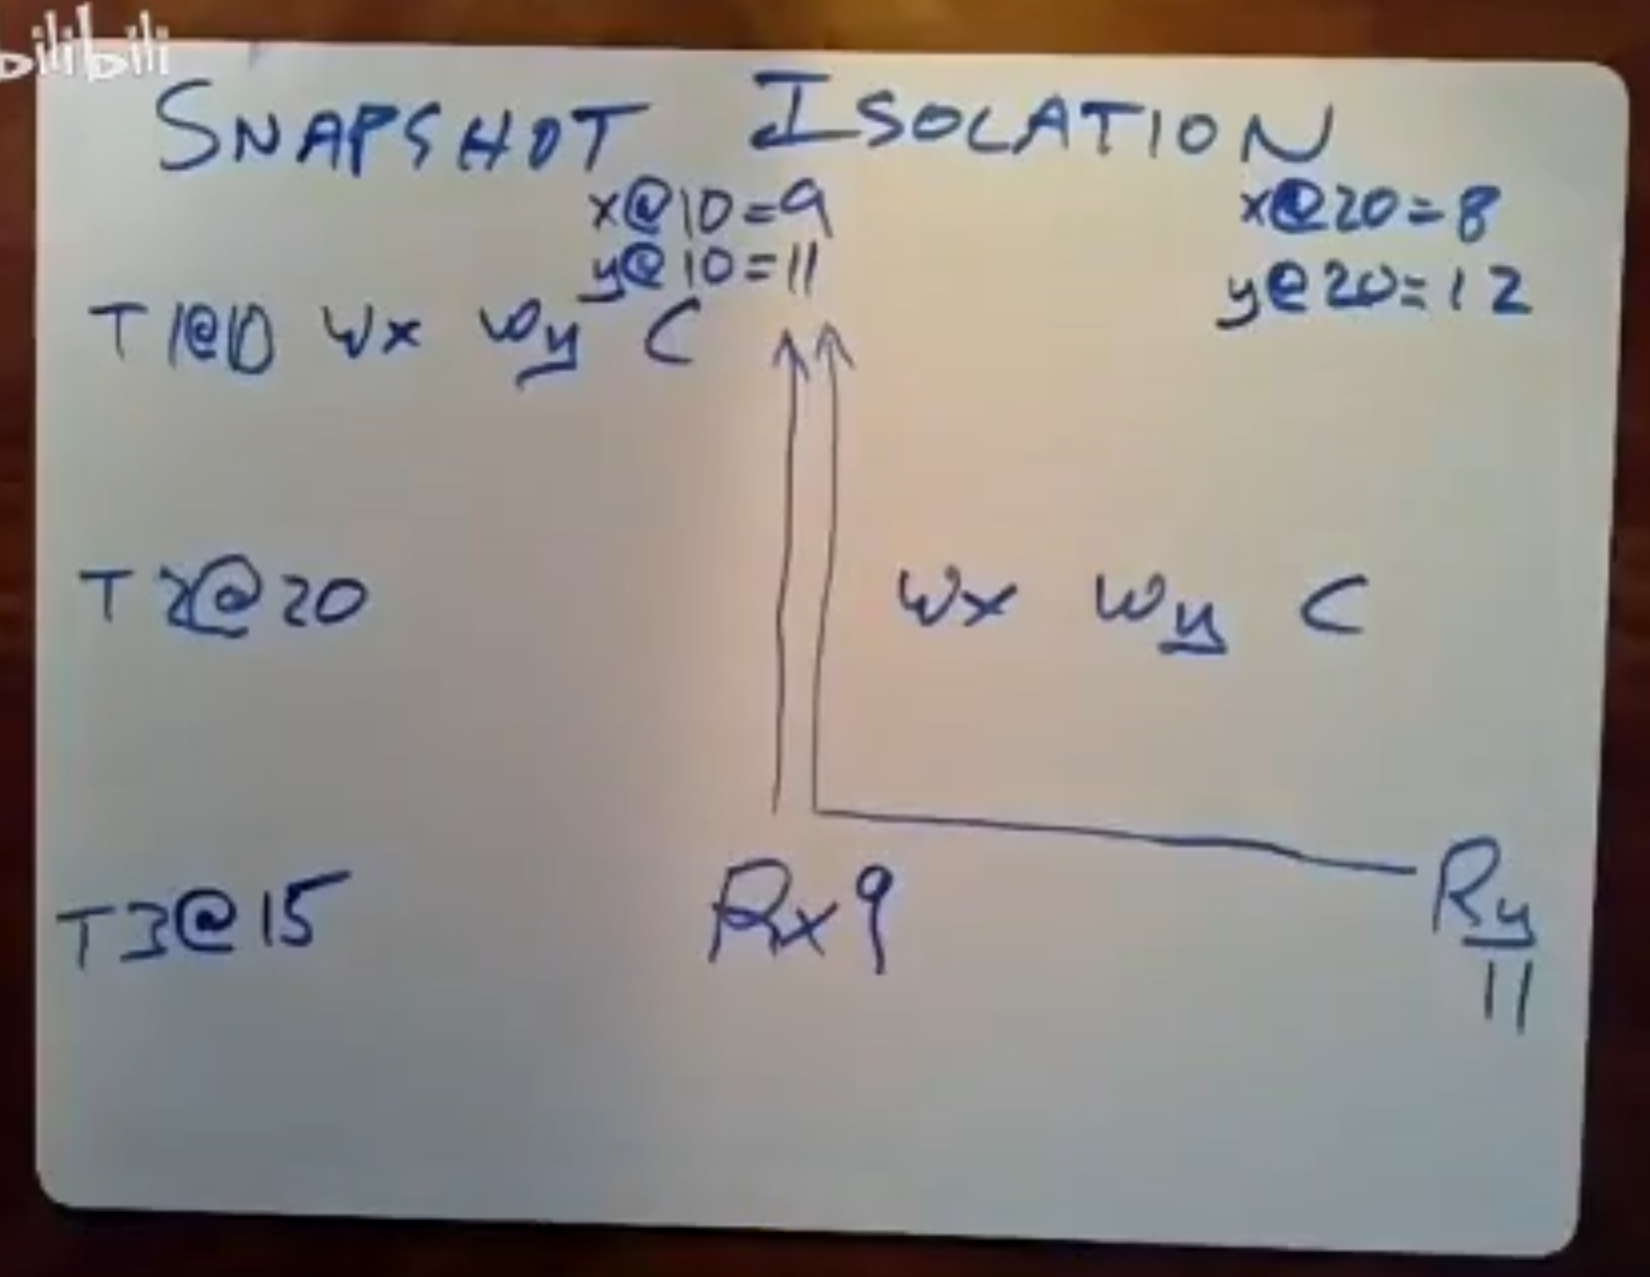 bilibili
SNAPSHOT ISOLATION
x@10=9
y@10=11
x@20=8
y@20=12
T1@10 Wx Wy C
T2@20 Wx Wy C
T3@15 Rx9 Ry
11